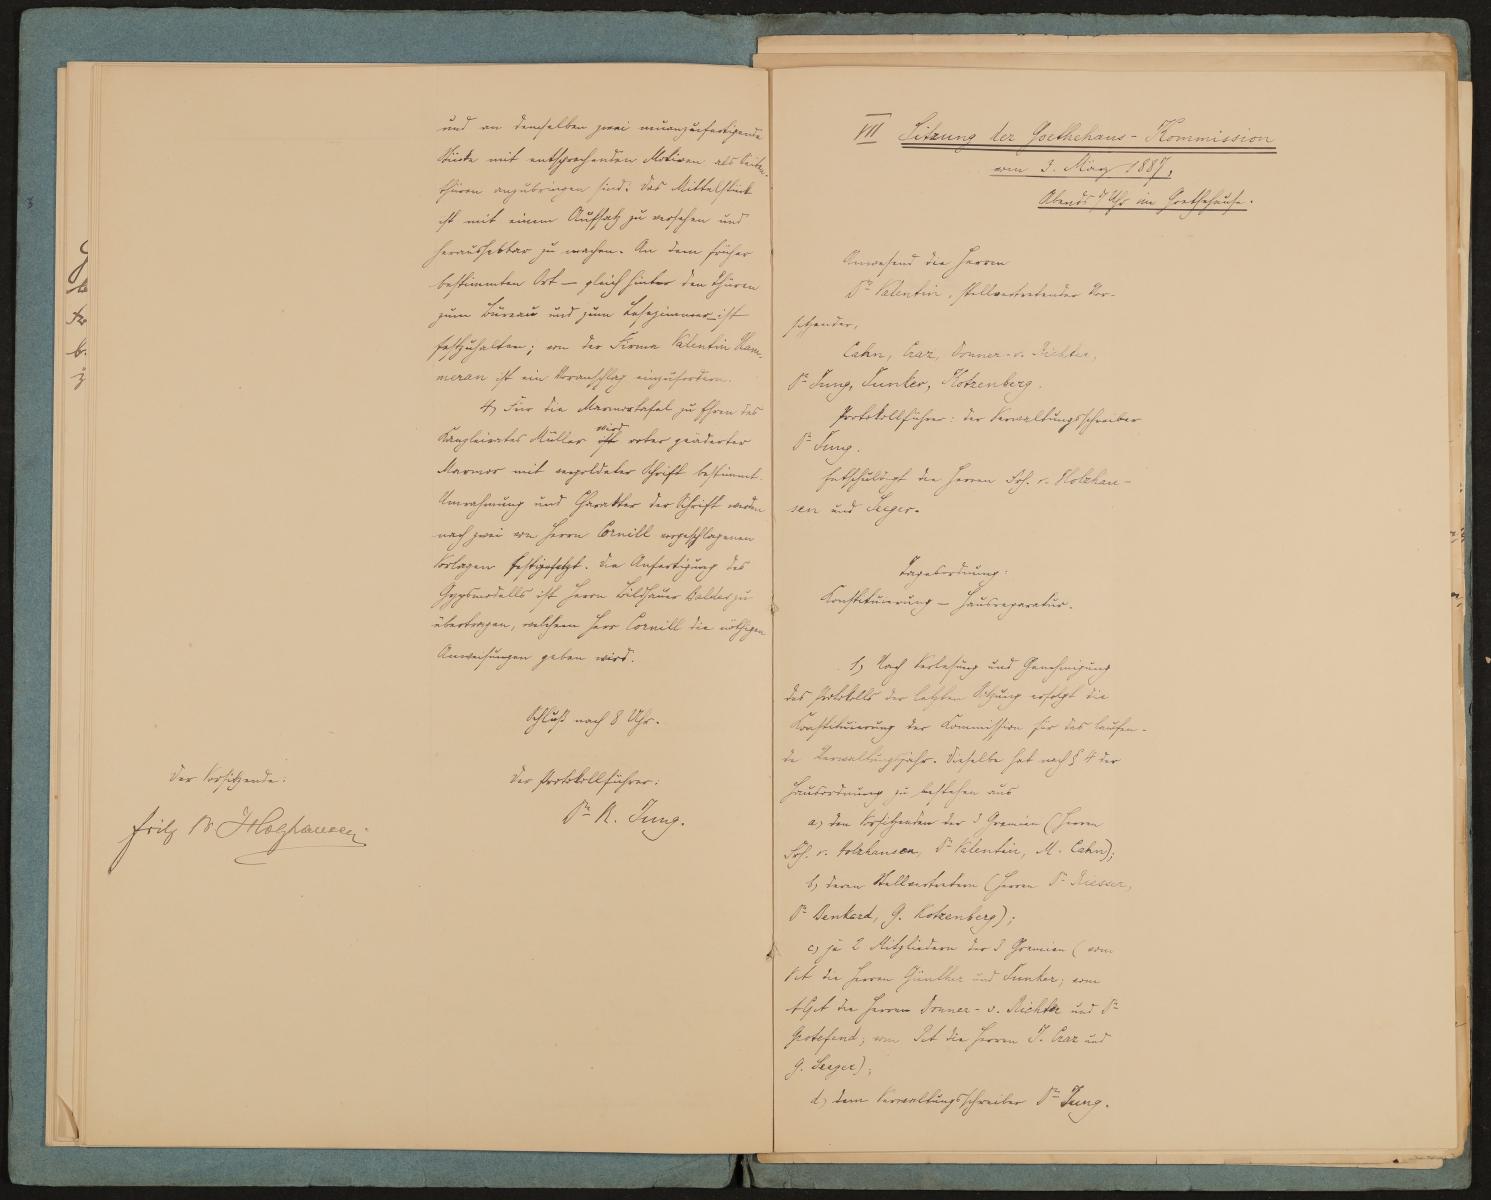 und an demselben zwei neuanzufertigende
Stücke mit entsprechenden Motiven als Seiten-
thüren anzubringen sind: das Mittelstück
ist mit einem Aufsatz zu versehen und
heraushebbar zu machen. An dem früher
bestimmten Ort – gleich hinter den Thüren
zum Bureau und zum Lesezimmer – ist
festzuhalten; von der Firma Valentin Ham-
meran ist ein Voranschlag einzufordern.
4) Für die Marmortafel zu Ehren des
Kanzleirates Müller wird roter geäderter
Marmor mit vergoldeter Schrift bestimmt.
Umrahmung und Charakter der Schrift werden
nach zwei von Herrn Cornill vorgeschlagenen
Vorlagen festgesetzt. Die Anfertigung des
Gypsmodells ist Herrn Bildhauer zu
übertragen, welchem Herr Cornill die nöthigen
Anweisungen geben wird.
Schluß nach 8 Uhr.
Der Vorsitzende:
Der Protokollführer:
Fritz v. Holzhausen
Dr R. Jung.
VII Sitzung der Goethehaus-Kommission
vom 3. März 1887,
Abends 7 Uhr im Goethehause.
Anwesend die Herren
Dr Valentin, stellvertretender Vor-
sitzender,
Cahn, Craz, Donner-v. Richter,
Dr Jung, Junker, Kotzenberg.
Protokollführer: der Verwaltungsschreiber
Dr Jung.
Entschuldigt die Herren Frh. v. Holzhau-
sen und Seeger.
Tagesordnung:
Konstituierung – Hausreparatur.
1) Nach Verlesung und Genehmigung
des Protokolls der letzten Sitzung erfolgt die
Konstituierung der Kommission für das laufen-
de Verwaltungsjahr. Dieselbe hat nach § 4 der
Hausordnung zu bestehen aus
a) den Vorsitzenden der 3 Gremien (Herren
Frh. v. Holzhausen, Dr Valentin, M. Cahn);
b) deren Stellvertretern (Herren Dr Riesser,
Dr Denhard, G. Kotzenberg);
c) je 2 Mitgliedern der 3 Gremien (vom
VA die Herren Günther und Junker; vom
AGA die Herren Donner-v. Richter und Dr
Grotefend; vom die Herren J. Craz und
G. Seeger);
d) dem Verwaltungsschreiber Dr Jung.